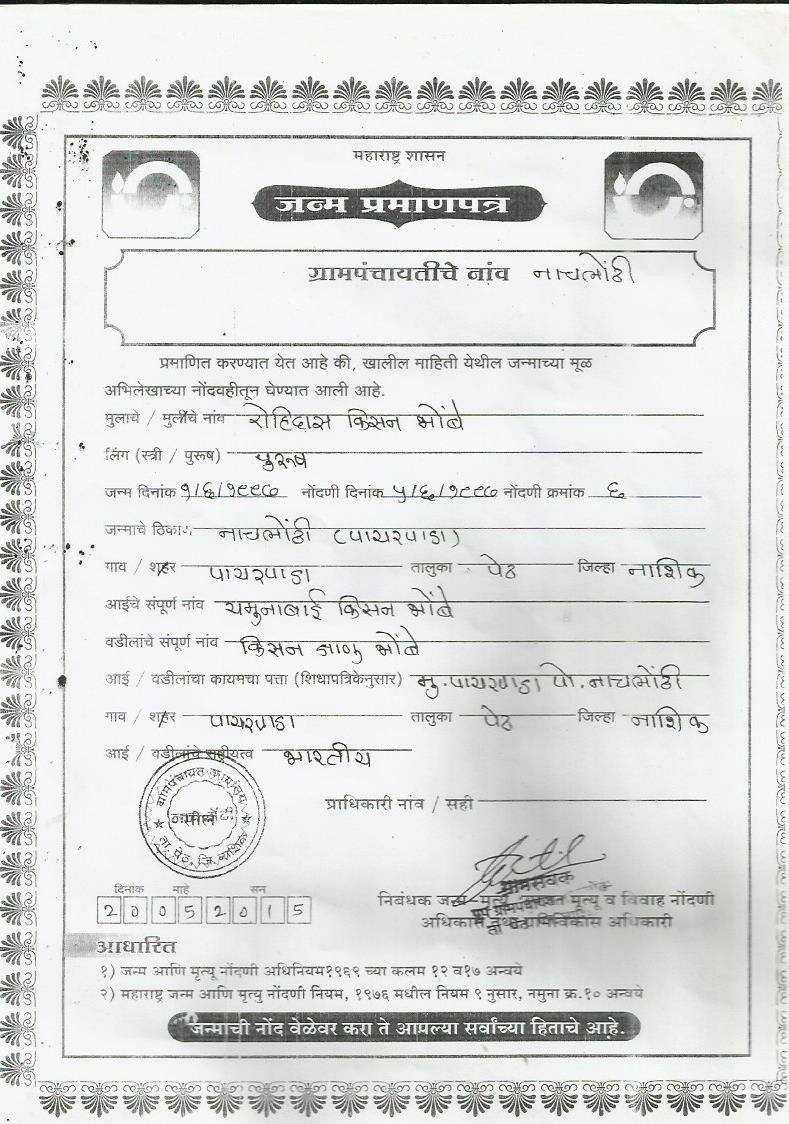 महाराष्ट्र शासन
जन्म प्रमाणपत्र
ग्रामपंचायतीचे नांव नाचलोंढी
प्रमाणित करण्यात येत आहे की, खालील माहिती येथील जन्माच्या मूळ
अभिलेखाच्या नोंदवहीतून घेण्यात आली आहे.
मुलाचे / मुलीचे नांव रोहिदास किसन भोंबे
लिंग (स्त्री / पुरूष) पुरूष
जन्म दिनांक १/६/१९९७ नोंदणी दिनांक ५/६/१९९७ नोंदणी क्रमांक ६
जन्माचे ठिकाण नाचलोंढी (पायरपाडा)
गाव / शहर पायरपाडा तालुका पेठ जिल्हा नाशिक
आईचे संपूर्ण नांव यमुनाबाई किसन भोंबे
वडीलांचे संपूर्ण नांव किसन भोंबे
आई / वडीलांचा कायमचा पत्ता (शिधापत्रिकेनुसार) मु. पायरपाडा पो. नाचलोंढी
गाव / शहर पायरपाडा तालुका पेठ जिल्हा नाशिक
आई / वडीलांचे राष्ट्रीयत्व भारतीय
ग्रामपंचायत कार्यालय
ता. पेठ, जि. नाशिक
प्राधिकारी नांव / सही
दिनांक माहे सन
20052015
ग्रामसेवक
निबंधक जन्म मृत्यू मृत्यू व विवाह नोंदणी
अधिकारी तथा ग्रामविकास अधिकारी
आधारित
१) जन्म आणि मृत्यू नोंदणी अधिनियम१९६९ च्या कलम १२ व१७ अन्वये
२) महाराष्ट्र जन्म आणि मृत्यु नोंदणी नियम, १९७६ मधील नियम ९ नुसार, नमुना क्र.१० अन्वये
जन्माची नोंद वेळेवर करा ते आपल्या सर्वांच्या हिताचे आहे.